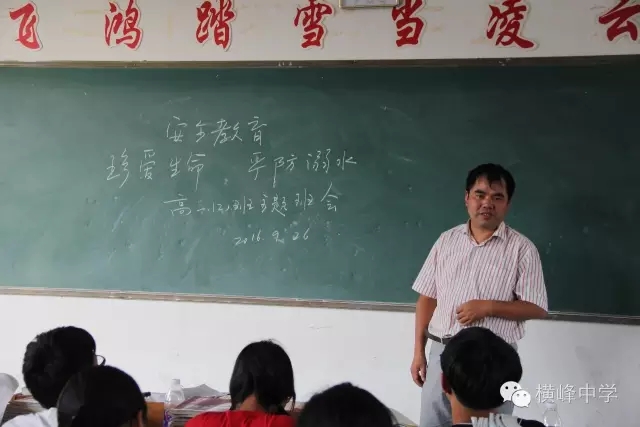 飞鸿踏雪当凌云
安全教育
珍爱生命，严防溺水
高二(2)班主题班会
2016.9.26
横峰中学